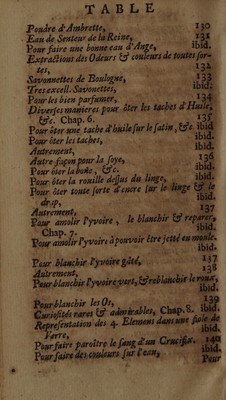 TABLE
Poudre d'Ambrette, 130
Eau de Senteur de la Reine, 131
Pour faire une bonne eau d'Ange, ibid.
Extractions des Odeurs & couleurs de toutes sor-
tes, 132
Savonnettes de Boulogne, 133
Tres excell. Savonettes, ibid.
Pour les bien parfumer, 134
Diverses manieres pour ôter les taches d'Huile,
&c. Chap. 6. 135
Pour ôter une tache d'huile sur le satin, &c. ibid
Pour ôter les taches, ibid.
Autrement, ibid.
Autre façon pour la soye, 136
Pour ôter la boüe, &c. ibid.
Pour ôter la rouille dessus du linge, ibid.
Pour ôter toute sorte d'encre sur le linge & le
drap, ibid.
Autrement, 137
Pour amolir l'yvoire, le blanchir & reparer,
Chap. 7. ibid.
Pour amolir l'yvoire à pouvoir être jetté en moule.
ibid.
Pour blanchir l'yvoire gâté, 137
Autrement, 138
Pour blanchir l'yvoire vert, & reblanchir le roux,
ibid.
Pour blanchir les Os, 139
Curiosités rares & admirables, Chap. 8. ibid.
Representation des 4. Elemens dans une fiole de
Verre, ibid.
Pour faire paroître le sang d'un Crucifix. 140
Pour faire des couleurs sur l'eau, ibid.
Pour